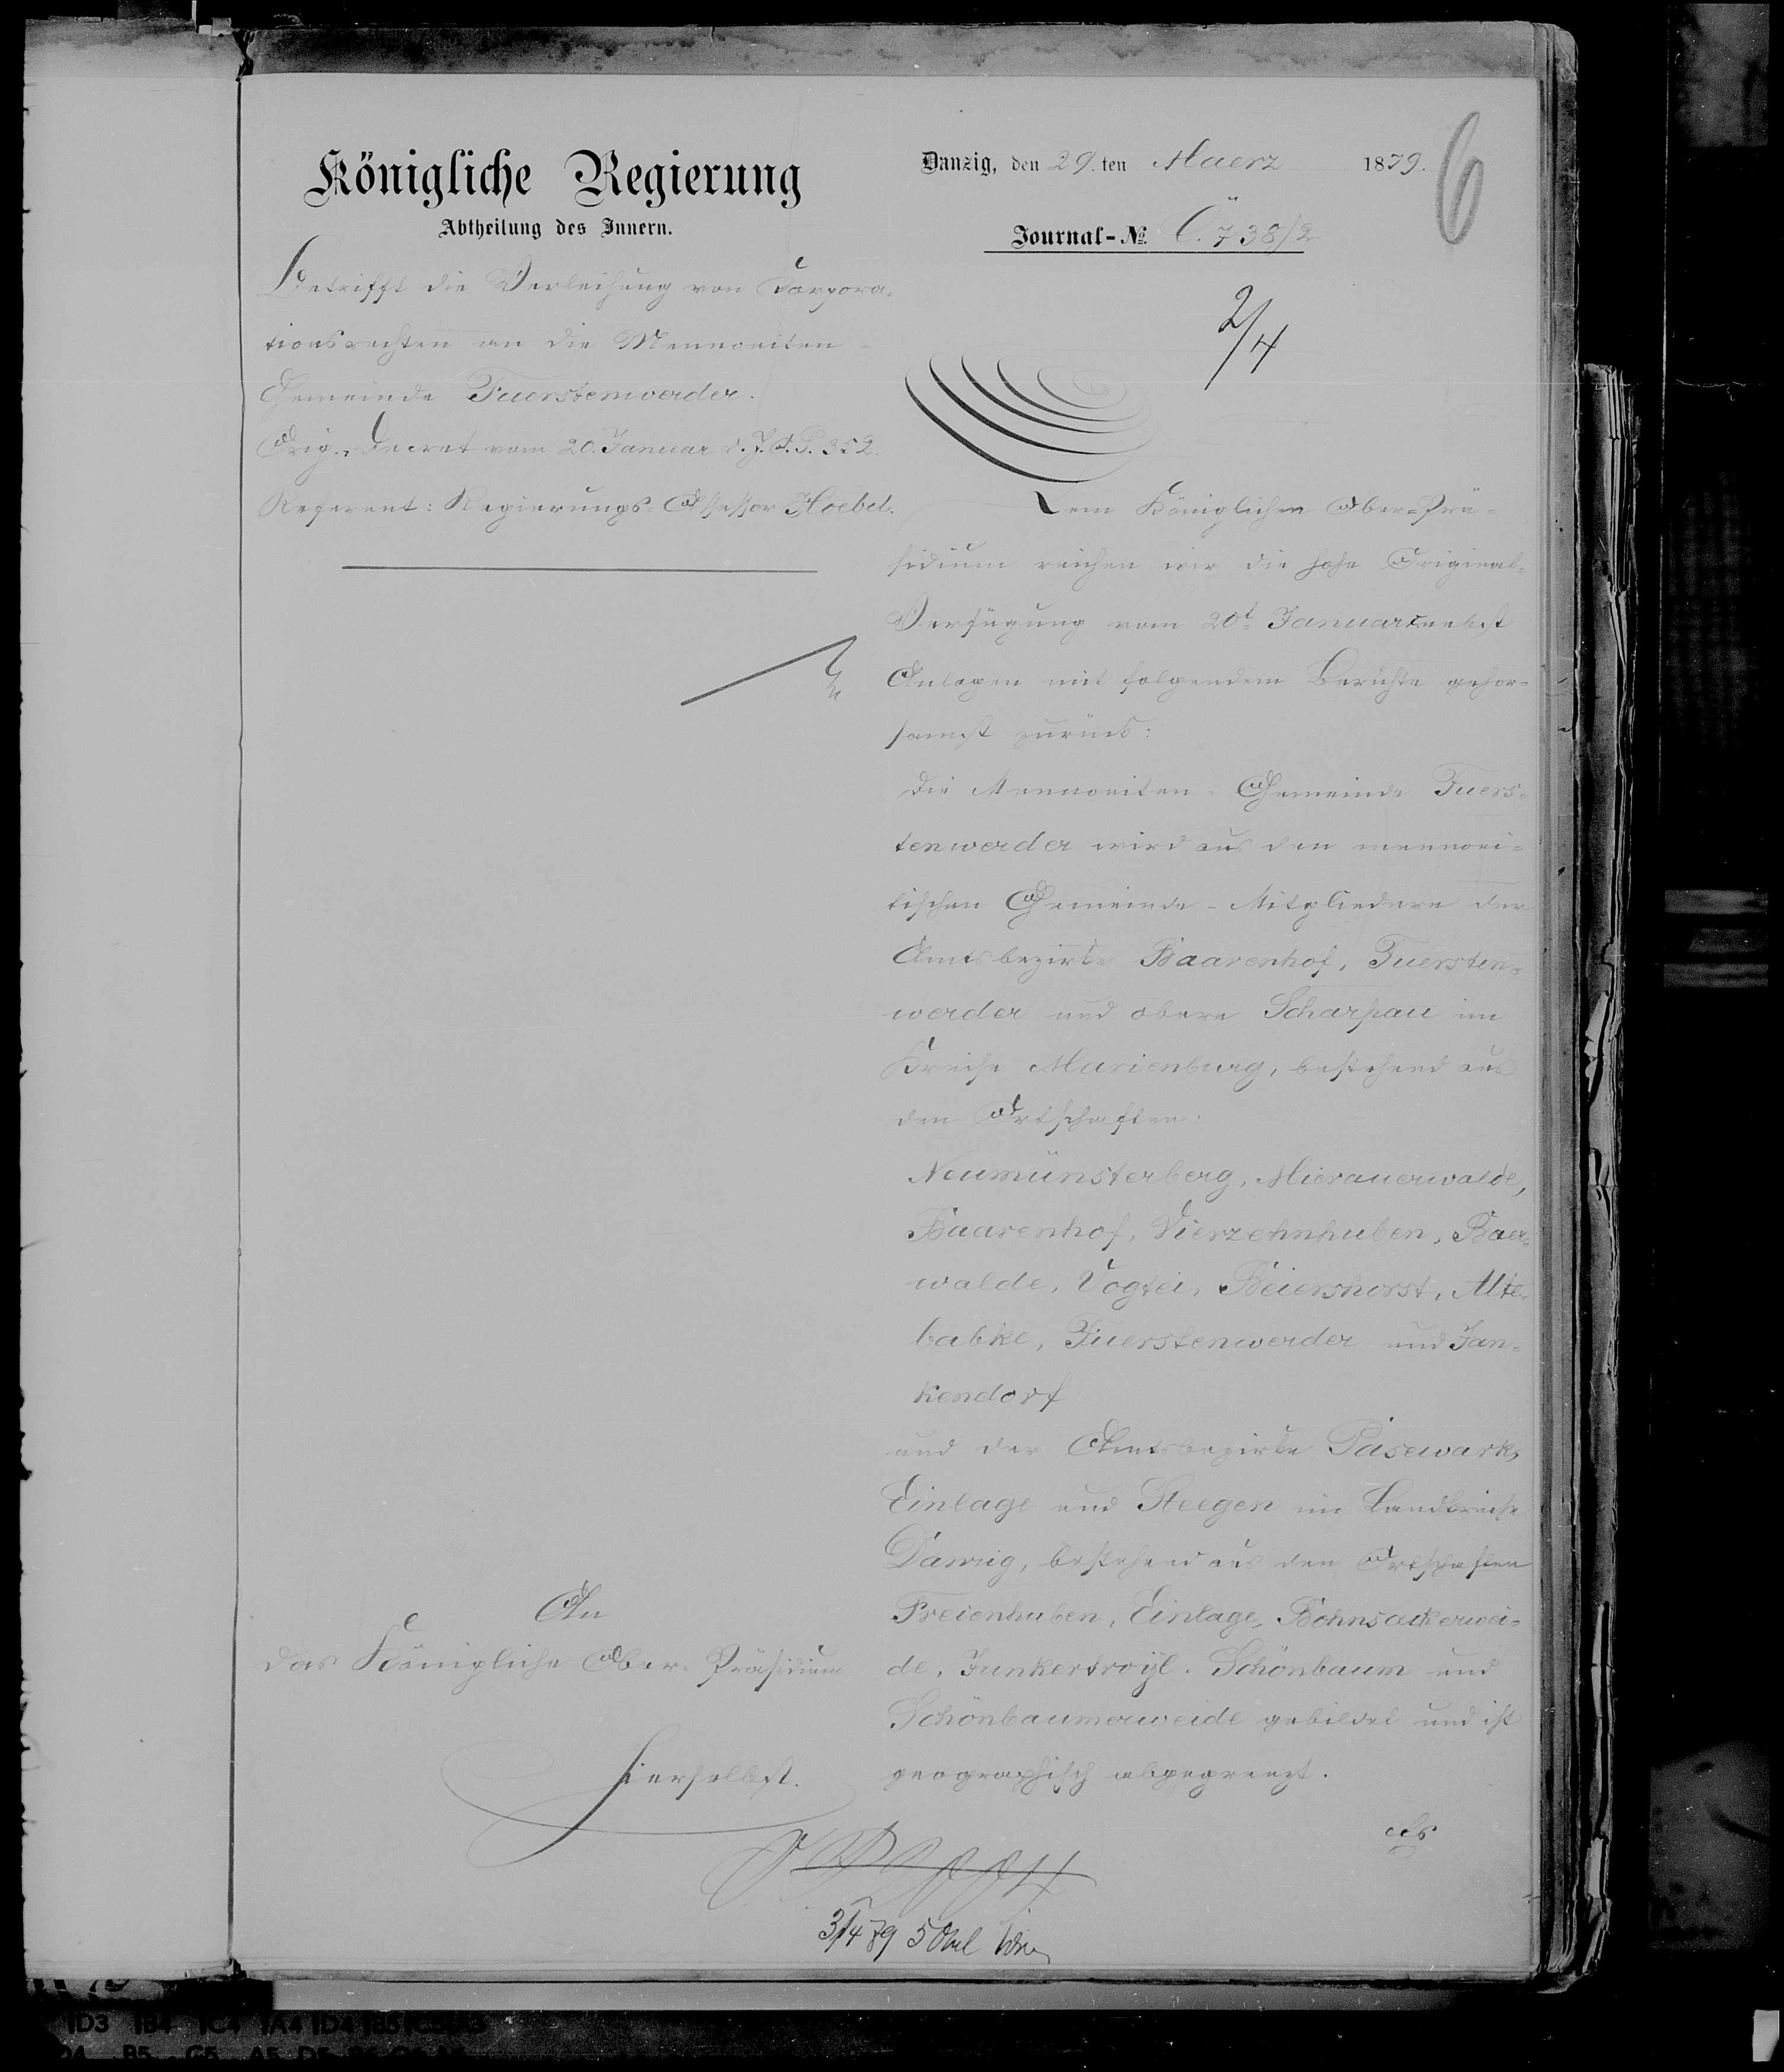 Königliche Regierung
Abtheilung des Innern.
Betrifft die Verleihung von Korpora-
tionsrechten an die Mennoniten-
Gemeinde Fuerstenwerder.
Orig. Decret vom 20. Januar d. J. O. P. 352.
Referent: Regierungs-Assessor Hoebel.
Danzig, den 29. ten Maerz 1879.
6
Journal-No. C. 738/2
2/4
Dem Königlichen Ober-Prä-
sidium reichen wir die hohe Original-
Verfügung vom 20t Januar nebst
Anlagen mit folgendem Berichte gehor-
samst zurück:
Die Mennoniten-Gemeinde Fuers-
tenwerder wird aus den mennoni-
tischen Gemeinde-Mitgliedern der
Amtsbezirke Baarenhof, Fuersten-
werder und obere Scharpau im
Kreise Marienburg, bestehend aus
den Ortschaften:
Neumünsterberg, Mierauerwalde,
Baarenhof, Vierzehnhuben, Baer-
walde, Vogtei, Beiershorst, Alte-
babke, Fuerstenwerder und Jan-
kendorf
und der Amtsbezirke Pasewark,
Einlage und Steegen im Landkreise
Danzig, bestehend aus den Ortschaften
Freienhuben, Einlage, Bohnsackerwei-
de, Junkertroyl. Schönbaum und
Schönbaumerweide gebildet und ist
geographisch abgegrenzt.
Es
An
das Königliche Ober-Präsidium
hierselbst.
3/4 79 5